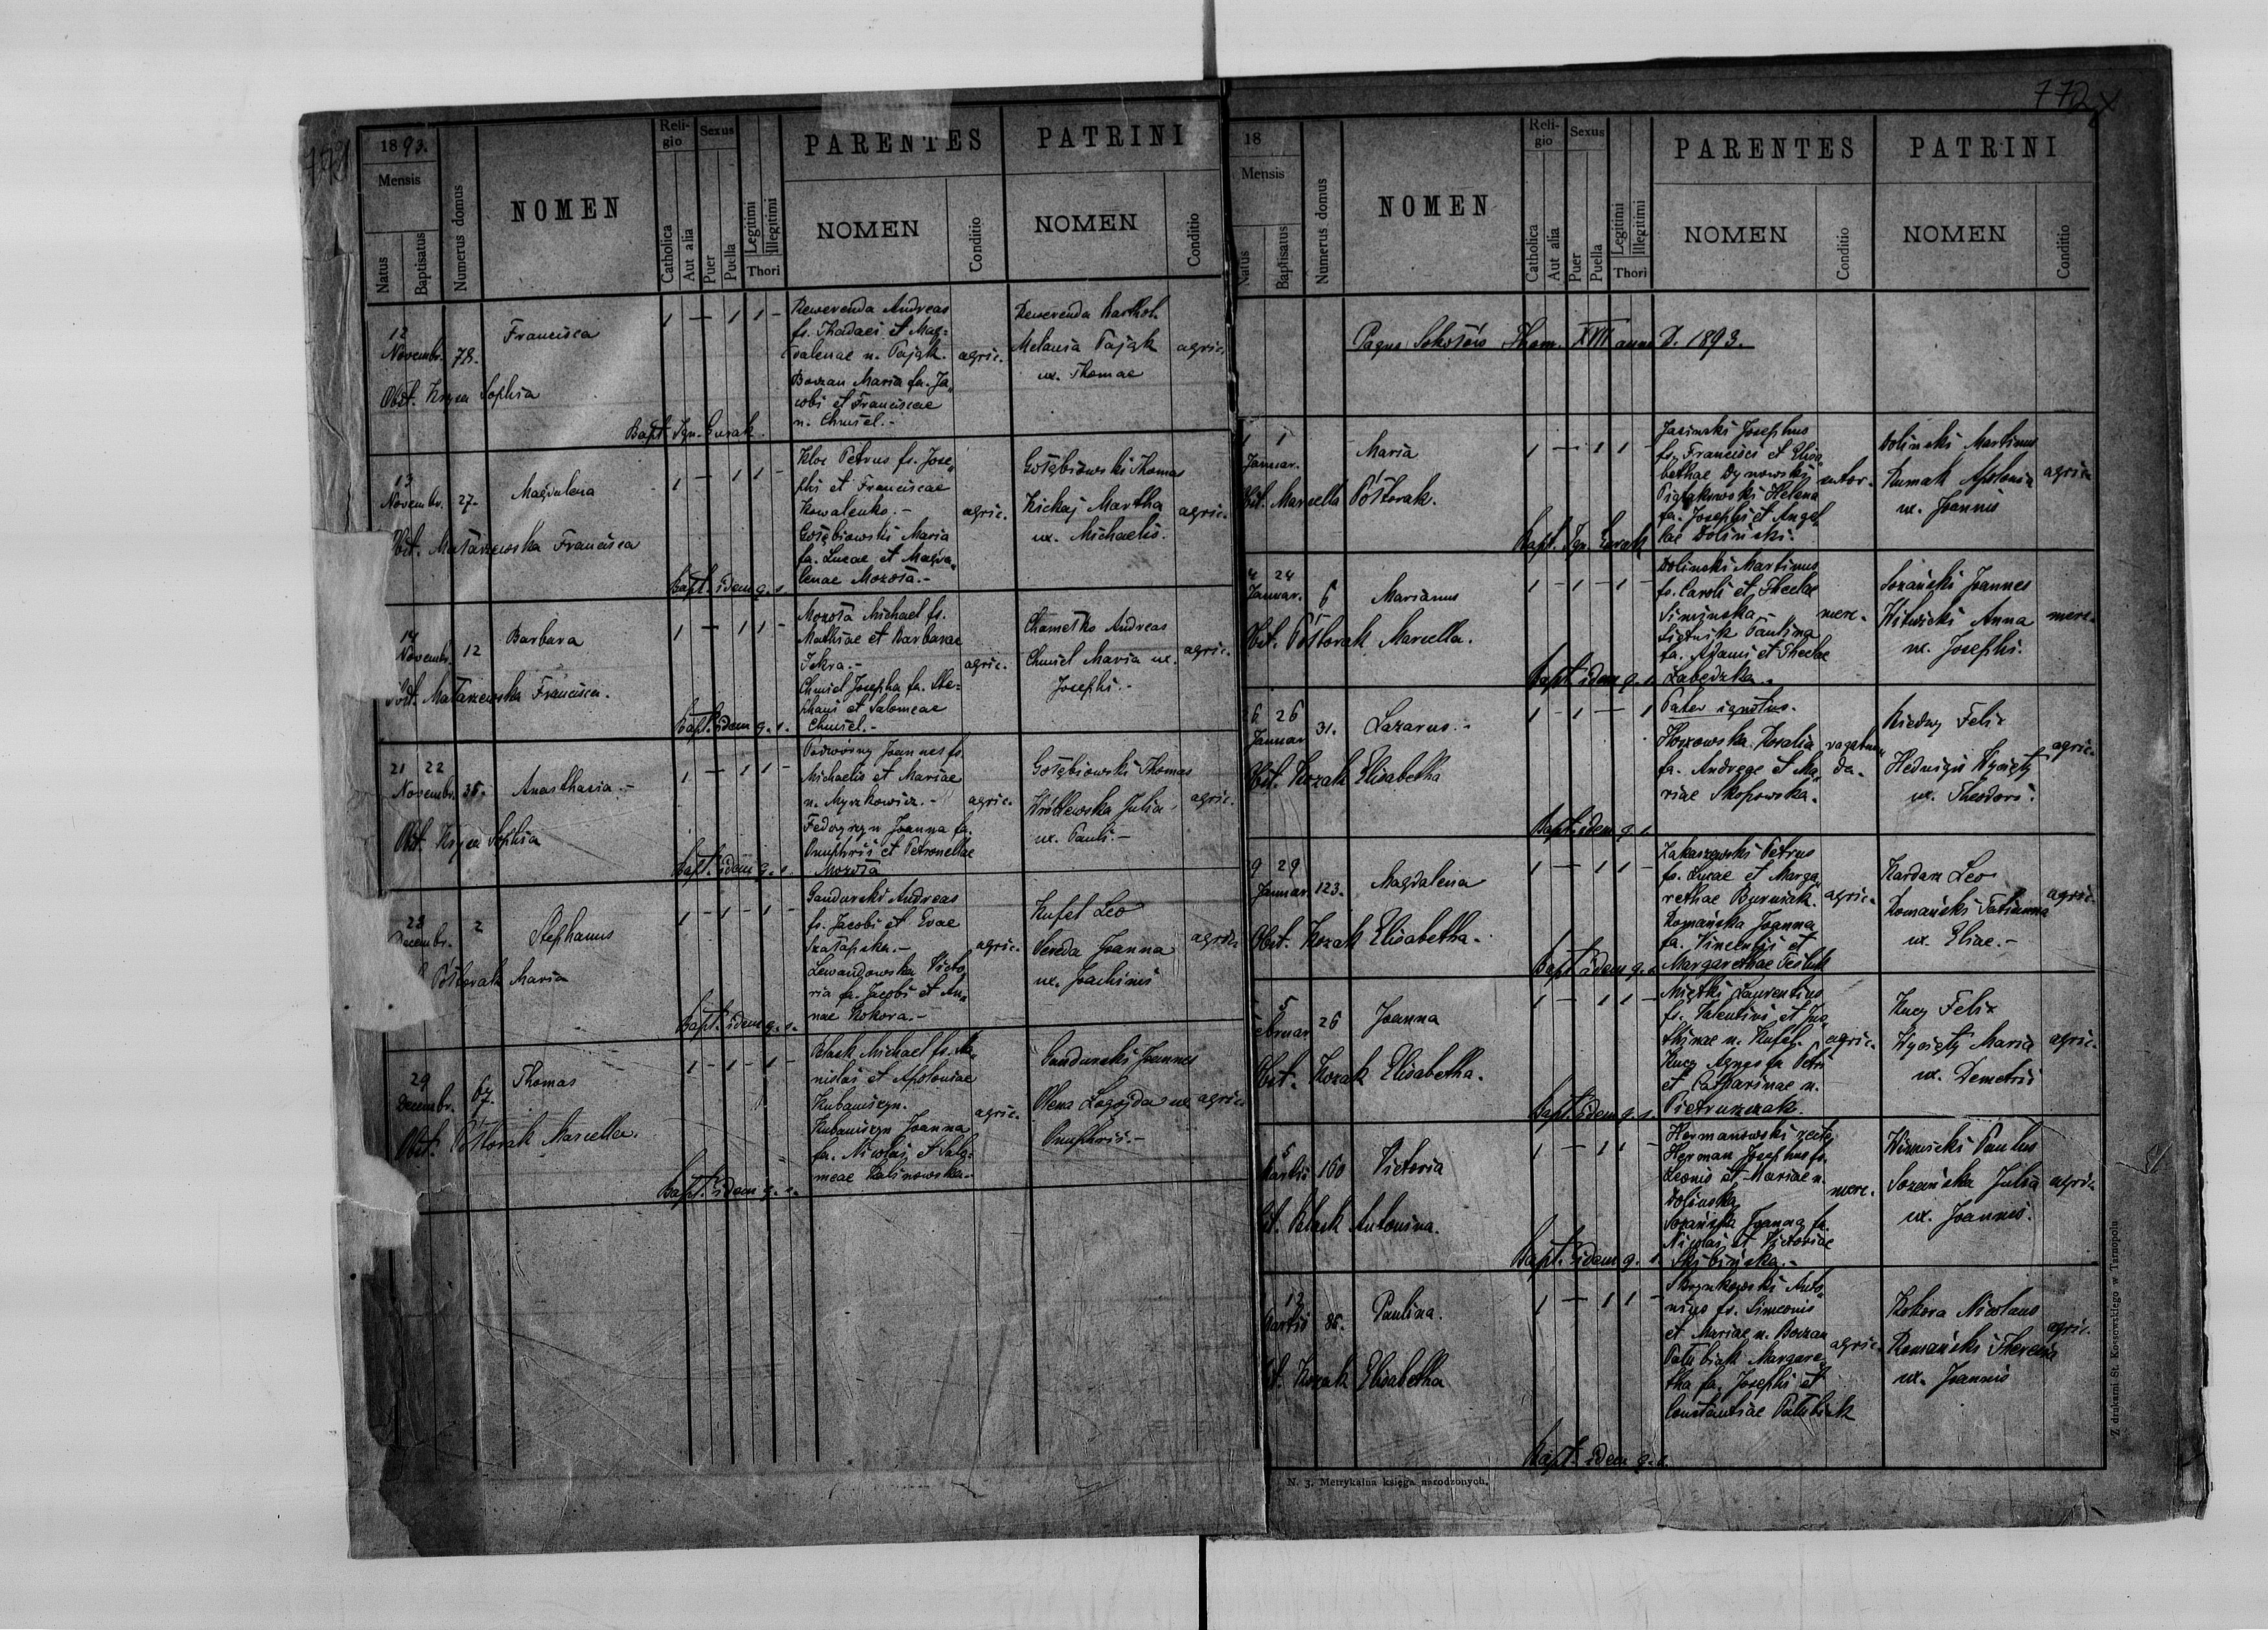 772
1893.
Mensis
Natus
Baptisatus
Numerus domus
NOMEN
Religio
Catholica
Aut alia
Sexus
Puer
Puella
Legitimi
Illegitimi
Thori
PARENTES
NOMEN
Conditio
PATRINI
NOMEN
Conditio
12
Novembr. 78.
Francisca
1 — 1 1 —
Rewerenda Andreas
fs. Thadaei et Mag=
dalenae n. Pająk.
Bovzan Maria fa. Ja
cobi et Franciscae
n. Chmiel.-
agric.
Rewerenda Barthol.
Melania Pająk
ux. Thomae
agric.
Obst. Kryca Sophia
Bapt. Ign. Gurak.
13
Novembr. 27.
Magdalena
1 — 1 1 —
Kloc Petrus fs. Jose
phi et Franciscae
Kowalenko.-
Gołębiowski Maria
fa. Lucae et Magda
lenae Mozoła.-
agric.
Gołębiowski Thomas
Kickaj Martha
ux. Michaelis.
agric.
Obst. Matarzewska Francisca
Bapt. idem q. s.
14
Novembr. 12
Barbara
1 — 1 1 —
Mozoła Michael fs.
Mathiae et Barbarae
Iskra.-
Chmiel Josepha fa. Ste=
phani et Salomeae
Chmiel.-
agric.
Chamełko Andreas
Chmiel Maria ux.
Josephi.-
agric.
Obst. Matarzewska Francisca.
Bapt. idem q. s.
21 22
Novembr. 35.
Anasthasia.-
1 — 1 1 —
Podwórny Joannes fs.
Michaelis et Mariae
n. Myszkowicz.-
Fedoryszyn Joanna fa.
Onuphrii et Petronellae
Mozoła
agric.
Gołębiowski Thomas
Wróblewska Julia
ux. Pauli.-
agric.
Obst. Kryca Sophia
Bapt. idem q. s.
23
Decembr. 2
Stephanus
1 — 1 — 1 —
Gandurski Andreas
fs. Jacobi et Evae
Szałajska.-
Lewandowska Victo
ria fa. Jacobi et An
nae Kokora.-
agric.
Kufel Leo
Sereda Joanna
ux. Joachimi
agric.
Półtorak Maria
Bapt. idem q. s.
29
Decembr. 67.
Thomas
1 — 1 — 1 —
Blask Michael fs.
nislai et Apoloniae
Kubaniszyn.
Kubaniszyn Joanna
fa. Nicolai et Salo=
meae Kalinowska.-
agric.
Gandurski Joannes
Olena Łagojda ux
Onuphrii.-
agric.
Obst. Półtorak Marcella.
Bapt. idem q. s.
18
Mensis
Natus
Baptisatus
Numerus domus
NOMEN
Religio
Catholica
Aut alia
Sexus
Puer
Puella
Legitimi
Illegitimi
Thori
PARENTES
NOMEN
Conditio
PATRINI
NOMEN
Conditio
Pagus Sokołów Thom. XVII anno D. 1893.
1 1
Januar.
Maria
1 — 1 1 —
Jasinski Josephus
fs. Francisci et Elisa
bethae Dynowski
Piątkowski Helena
fa. Josephi et Angel
lae Doliński.
sutor.
Doliński Martinus
Rumak Apolonia
ux. Joannis
agric.
Obst. Marcella Półtorak.
Bapt. Ign. Gurak
24
Januar. 6
Marianus
1 — 1 — 1 —
Doliński Martinus
fs. Caroli et Theclae
Simińska.-
Lietnik Paulina
fa. Adami et Theclae
Łabędzka.
merc.
Sozański Joannes
Witwicki Anna
ux. Josephi.
merc.
Obst. Półtorak Marcella.
Bapt. idem q. s.
26 26
Januar 31.
Lazarus.-
1 — 1 — 1
Pater ignotus.
Hoszowska Rosalia
fa. Andreae et Ma
riae Skopowska.
vagabun
da.
Kiedwy Felix
Hedwigis Wycięty
ux. Theodori.
agric.
Obst. Kozak Elisabetha
Bapt. idem q. s.
9 29
Januar 123.
Magdalena
1 — 1 1 —
Zakaszewski Petrus
fs. Lucae et Marga
rethae Burniak.
Romańska Joanna
fa. Vincentii et
Margarethae Tesluk
agric.
Kardasz Leo
Romański Tatianna
ux. Eliae.-
agric.
Obst. Kozak Elisabetha.
Bapt. idem q. s.
5
ebruar 26
Joanna
1 — 1 1 —
Miętki Laurentius
fs. Valentini et Jus
thinae n. Kufel.
Kucy Agnes fa Petri
et Catharinae n.
Pietruszczak.
agric.
Kucy Felix
Wycięty Maria
ux. Demetrii
agric.
Obst. Kozak Elisabetha.
Bapt. idem q. s.
5
Martii 160
Victoria
1 — 1 1 —
Hermanowski recte
Herman Josephus fs.
Leonis et Mariae n.
Dolińska
Sozańska Joanna fa.
Nicolai et Victoriae
Skibińska.-
merc.
Winnicki Paulus
Sozańska Julia
ux. Joannis.
agric.
Obst. Blask Antonina.
Bapt. idem q. s.
12
Martii 85.
Paulina.
1 — 1 1 —
Skrynkowski Anto
nius fs. Simeonis
et Mariae n. Bovzan
Patubiak Margare
tha fa. Josephi et
Constantiae Patubiak
agric.
Kokora Nicolaus
Romański Theresia
ux. Joannis
agric.
Kozak Elisabetha
Bapt. idem q. s.
N. 3. Metrykalna księga narodzonych.
Z drukarni St. Kossowskiego w Tarnopolu